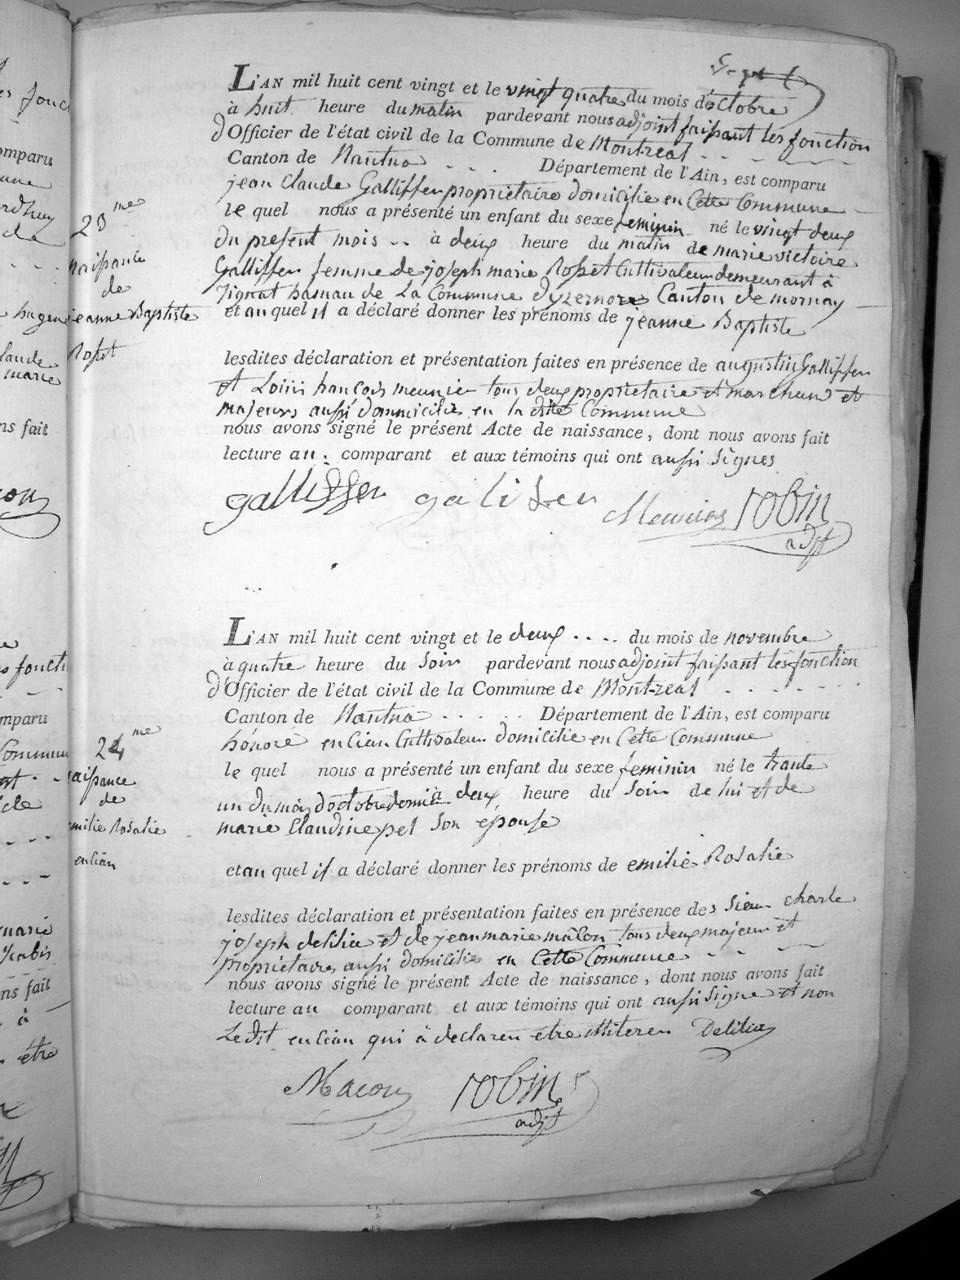 L'AN mil huit cent vingt et le vingt quatre du mois d'octobre
à huit heure du matin pardevant nous adjoint faisant les fonction
d'Officier de l'état civil de la Commune de Montreal
Canton de Nantua . . . . Département de l'Ain, est comparu
jean Claude Galliffen propriétaire domicilié en Cette Commune
le quel nous a présenté un enfant du sexe feminin né le vingt deux
du present mois . . à deux heure du matin de marie victoire
Galliffen femme de joseph marie Rosset Cultivateur demeurant à
hamau de La Commune d'yzernore Canton de mornay
et au quel il a déclaré donner les prénoms de jeanne Baptiste
lesdites déclaration et présentation faites en présence de augustin Galliffen
et Loüis françois meunier tous deux propriétaire et marchand et
majeurs aussi domicilié en la dite Commune
nous avons signé le présent Acte de naissance, dont nous avons fait
lecture au : comparant et aux témoins qui ont aussi signés
galliffen galifen Meunier robin
adjt
20me
naissance
de
jeanne Baptiste
Rosset
L'AN mil huit cent vingt et le deux . . . . du mois de novembre
à quatre heure du soir pardevant nous adjoint faissant les fonction
d'Officier de l'état civil de la Commune de Montreal . . . . . . .
Canton de Nantua . . . . . Département de l'Ain, est comparu
hónoré encian Cultivateur domicilié en Cette Commune
le quel nous a présenté un enfant du sexe feminin né le trante
un du mois d'octobre dernié à deux heure du soir de lui et de
marie Claudine pet son epouse
et au quel il a déclaré donner les prénoms de emilie Rosalie
lesdites déclaration et présentation faites en présence des sieur charle
joseph delilia et de jean marie mâcon tous deux majeur et
propriétaires aussi domicilié en Cette Commune
nous avons signé le présent Acte de naissance, dont nous avons fait
lecture au comparant et aux témoins qui ont aussi signe et non
Ledit encian qui à déclaren être illiteren Delilia
Macon robin
adjt
21me
naissance
de
emilie Rosalie
encian